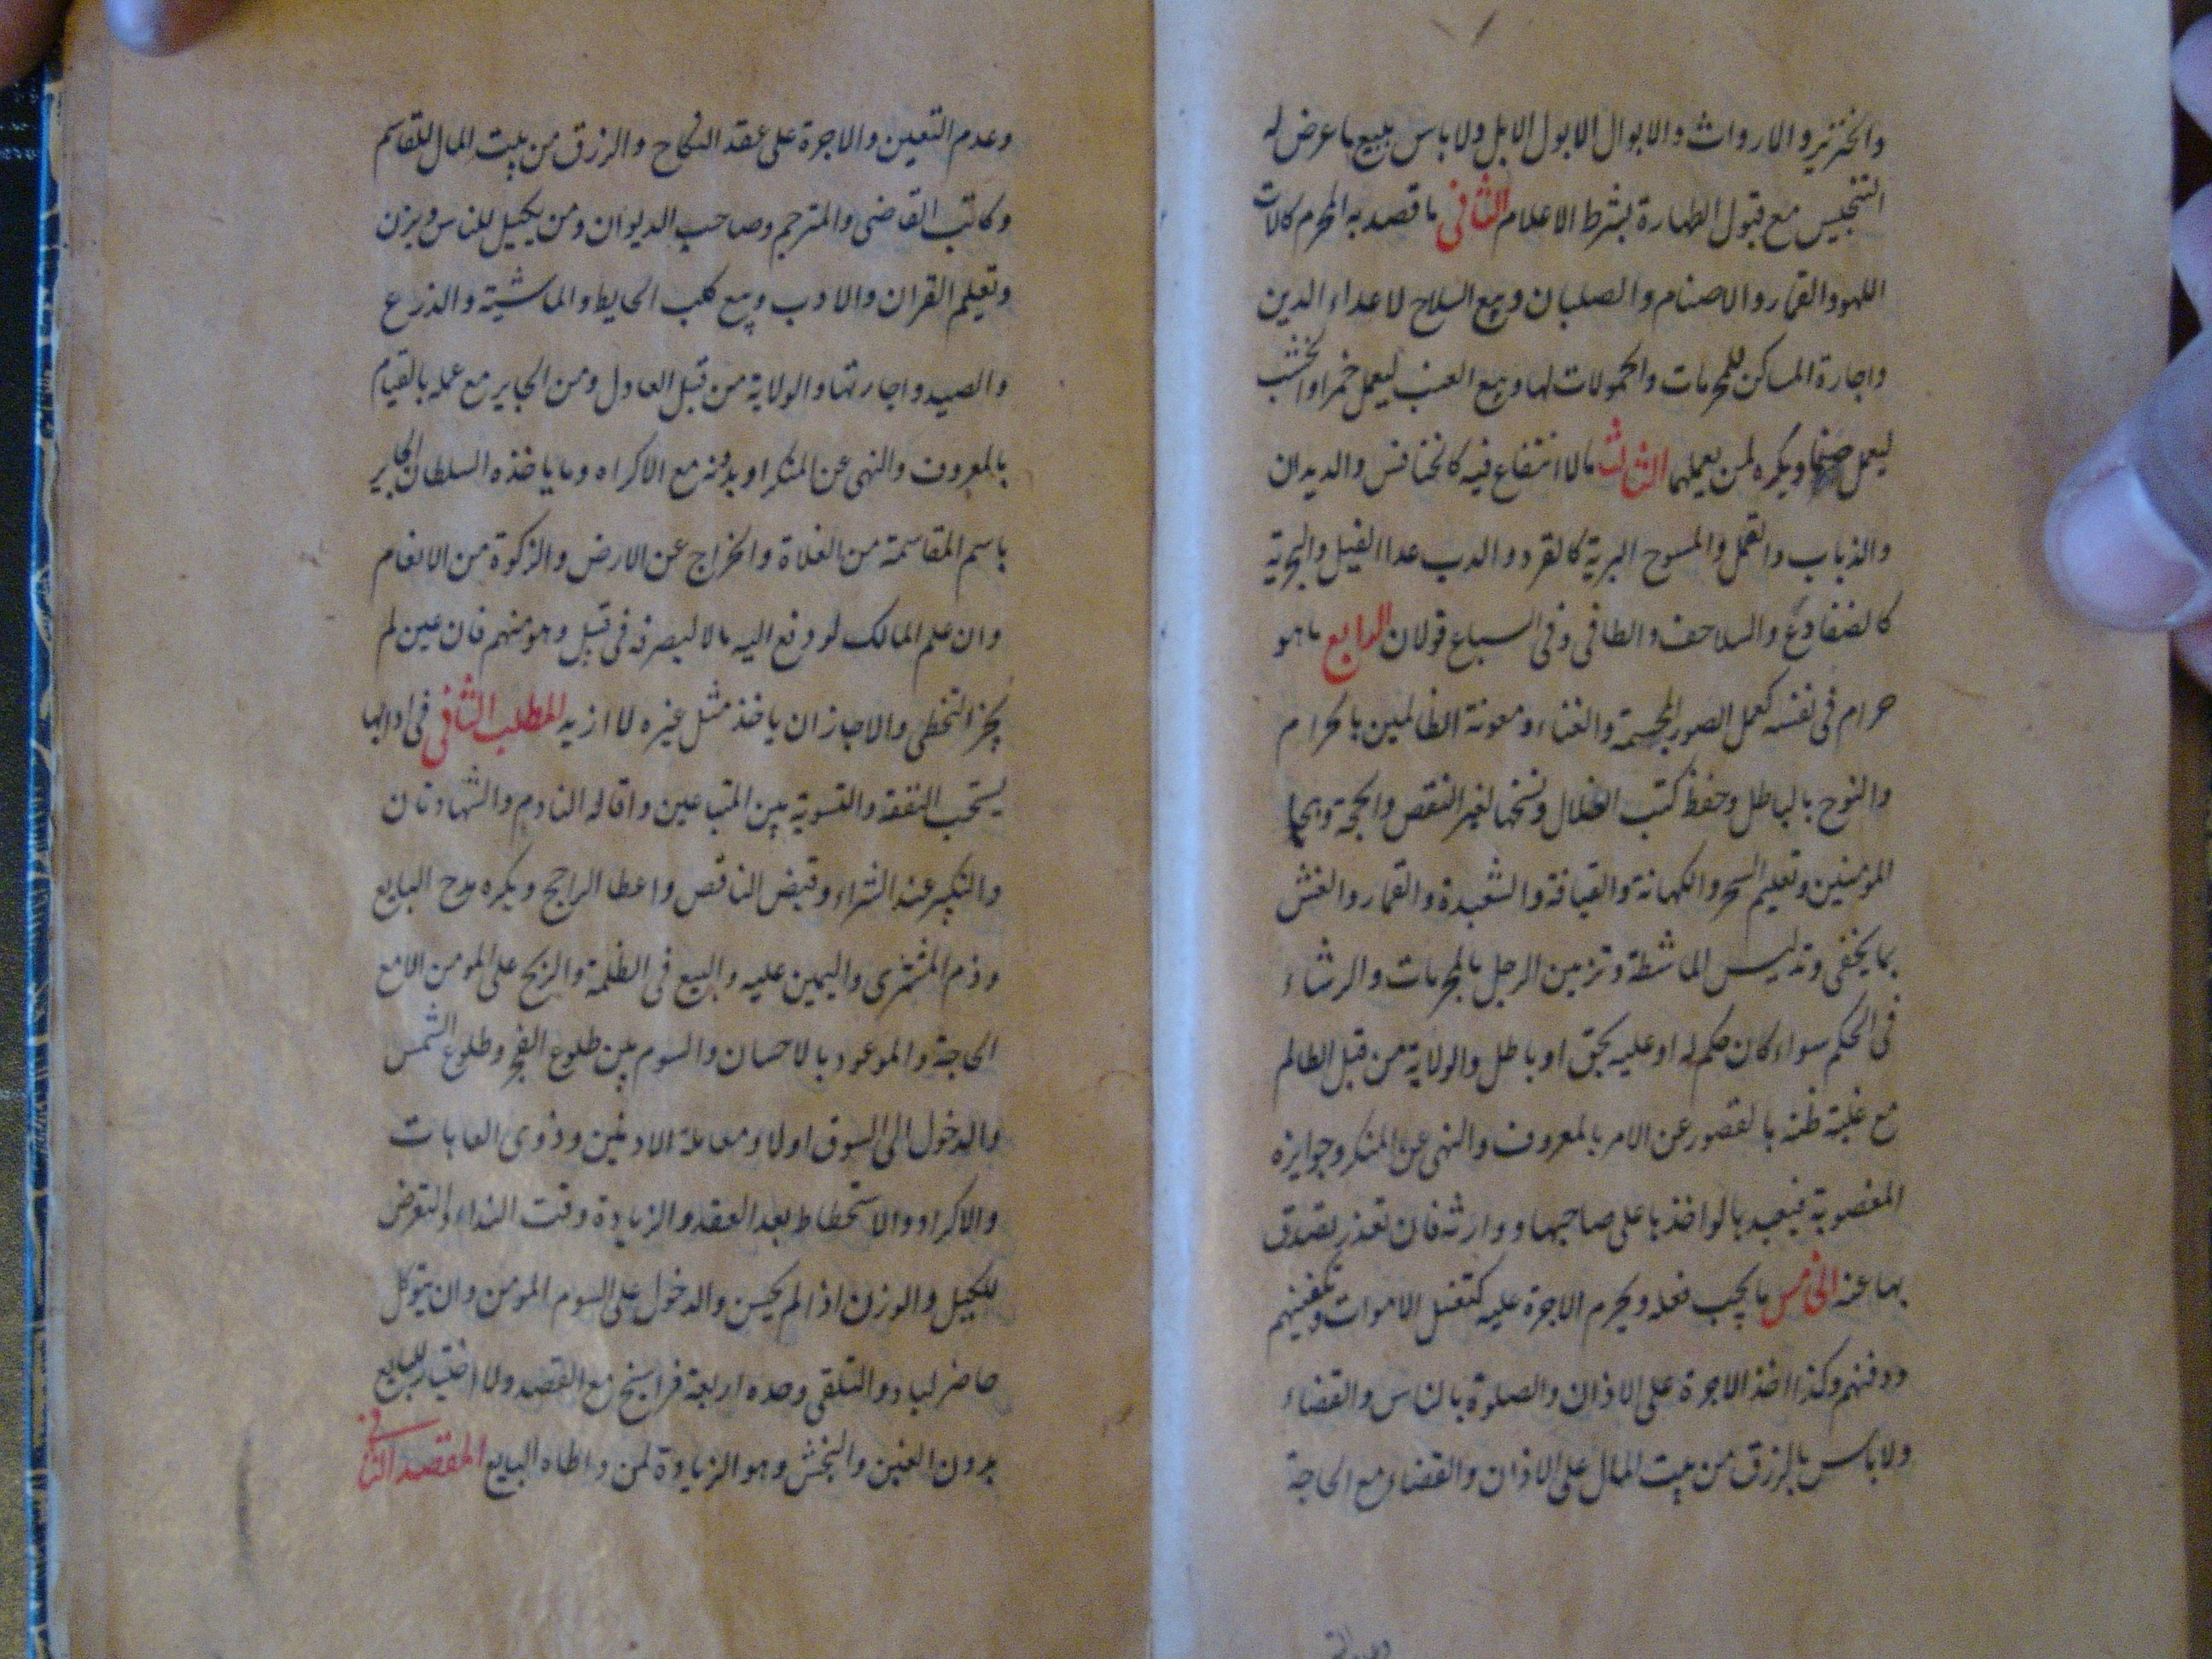 والخنزير والارواث والابوال الابول الابل ولا باس ببيع ما عرض له
التنجيس مع قبول الطهارة بشرط الاعلام الثانى ما قصد به المحرم كالات
اللهو والقمار والاصنام والصلبان وبيع السلاح لاعداء الدين
واجارة المساكن للمحرمات والحمولات لها وبيع العنب ليعمل خمرا والخشب
ليعمل صنما ويكره لمن يعملهما الثالث ما لا انتفاع فيه كالخنافس والديدان
والذباب والقمل والمسوح البرية كالقرد والدب عدا الفيل والبحرية
كالضفادع والسلاحف والطافى وفى السباع قولان الرابع ما هو
حرام فى نفسه كعمل الصور المجسمة والغناء ومعونة الظالمين بالحرام
والنوح بالباطل وحفظ كتب الضلال ونسخها لغير النقض والحجة وهجا
المومنين وتعليم السحر والكهانة والقيافة والشعبدة والقمار والغش
بما يخفى وتدليس الماشطة وتزيين الرجل بالمحرمات والرشاء
فى الحكم سواء كان حكم له او عليه بحق او باطل والولاية من قبل الظالم
مع غلبة ظنه بالقصور عن الامر بالمعروف والنهى عن المنكر وجوايزه
المغصوبة فيعيدها لو اخذها على صاحبها ووارثه فان تعذر تصدق
بها عنه الخامس ما يجب فعله ويحرم الاجرة عليه كتغسل الاموات وتكفينهم
ودفنهم وكذا اخذ الاجرة على الاذان والصلوة بالناس والقضاء
ولا باس بالرزق من بيت المال على الاذان والقضاء مع الحاجة
وعدم التعيين والاجرة على عقد النكاح والرزق من بيت المال للقاسم
وكاتب القاضى والمترجم وصاحب الديوان ومن يكيل للناس ويزن
وتعليم القران والادب وبيع كلب الحايط والماشية والزرع
والصيد واجارتها والولاية من قبل العادل ومن الجاير مع عمله بالقيام
بالمعروف والنهى عن المنكر او بدونه مع الاكراه وما ياخذه السلطان الجاير
باسم المقاسمة من الغلاة والخراج عن الارض والزكوة من الانعام
وان علم المالك لو دفع اليه مالا ليصرفه فى قبيل وهو منهم فان عين لم
يجز التخطى والا جاز ان ياخذ مثل غيره لا ازيد المطلب الثانى فى ادابها
يستحب التفقه والتسوية بين المتباعين واقالة النادم والشهادتان
والتكبير عند الشراء وقبض الناقص واعطا الراجح ويكره مدح البايع
وذم المشترى واليمين عليه والبيع فى الظلمة والربح على المومن الا مع
الحاجة والموعود بالاحسان والسوم بين طلوع الفجر وطلوع الشمس
والدخول الى السوق اولا ومعاملة الادنين وذوى العاهات
والاكراد والاستحطاط بعد العقد والزيادة وقت النداء والتعرض
للكيل والوزن اذا لم يحسن والدخول على السوم المومن وان يتوكل
حاضر لباد والتلقى وحده اربعة فراسخ مع القصد ولا اختيار للبايع
بدون الغبن والنجش وهو الزيادة لمن واطاه البايع المقصد الثانى